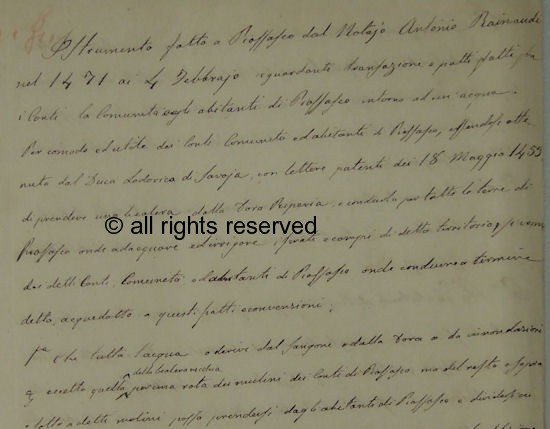 Istrumento fatto a Piossasco dal Notajo Antonio Rainaudi
nel 1471 ai 4 Febbrajo riguardanti transazione e patti fatti fra
i Conti la Comunità e gli abitanti di Piossasco intorno ad un'acqua.
Per comodo ed utile dei Conti Comunità ed abitanti di Piossasco, essendosi otte
nuta dal Duca Lodovico di Savoja, con lettere patenti dei 18 Maggio 1453
di prendere una bealera dalla Tora e condurla per tutto le terre di
Piossasco onde adacquare ed irrigare i prati e campi di detto territorio, si venne
© all rights reserved
dai detti Conti, Comunità ed abitanti di Piossasco onde condurre a termine
detto acquedotto a questi patti e convenzioni;
1ª Che tutta l'acqua o derivi dal Sangone o dalla Tora o da inondazioni
della bealera vecchia
eccetto quella per una rota dei mulini dei Conti di Piossasco ma del resto
e sotto a detti molini possa prendersi dagli abitanti di Piossasco e dividersi